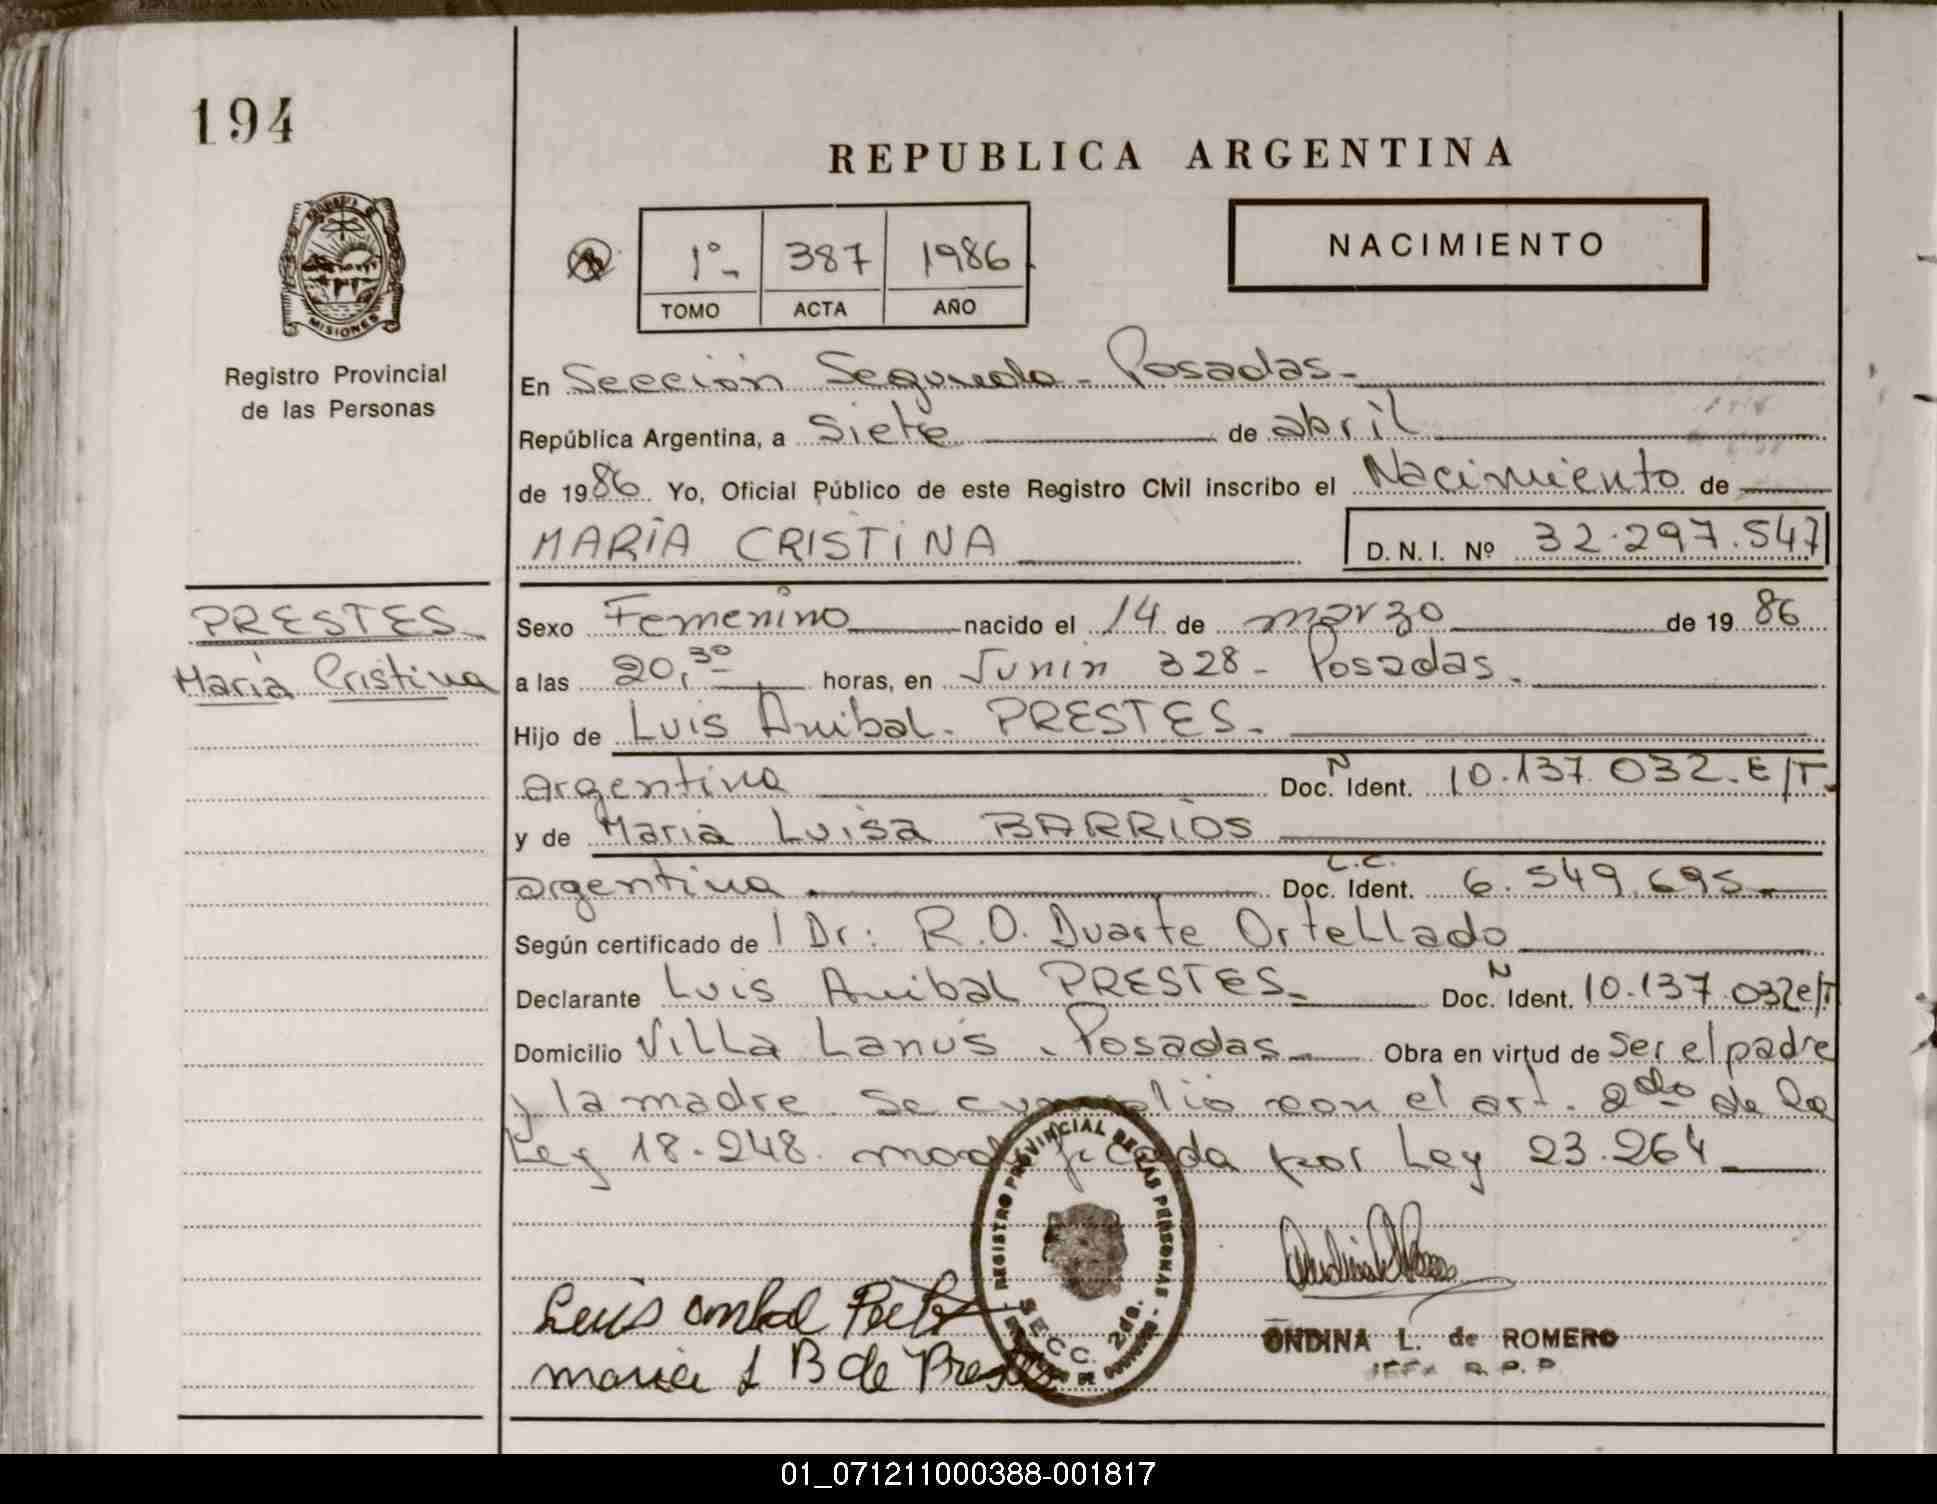 194
REPUBLICA ARGENTINA
1º- 387 1986
TOMO ACTA AÑO
NACIMIENTO
MISIONES
Registro Provincial
de las Personas
En Sección Segunda - Posadas -
República Argentina, a Siete de abril
de 1986 Yo, Oficial Público de este Registro Civil inscribo el Nacimiento de
MARÍA CRISTINA D. N. I. Nº 32.297.547
PRESTES
María Cristina
Sexo Femenino nacido el 14 de marzo de 19 86
a las 20,30 horas, en Junin 328 - Posadas.
Hijo de Luis Anibal - PRESTES -
argentina Doc. N Ident. 10.137.032. E/T.
y de Maria Luisa BARRIOS
argentina L.C. Doc. Ident. 6.549.695
Según certificado de l Dr: R.O. Duarte Ortellado
Declarante Luis Anibal PRESTES Doc. N Ident. 10.137.032 e/T
Domicilio Villa Lanús, Posadas Obra en virtud de Ser el padre
y la madre. Se cumplió con el art. 2do de la
Ley 18.248. modificada por Ley 23.264
REGISTRO PROVINCIAL DE LAS PERSONAS
SECC. 2da.
Luis
maria L B de Prestes
ONDINA L. de ROMERO
JEFE R.P.P.
01_071211000388-001817